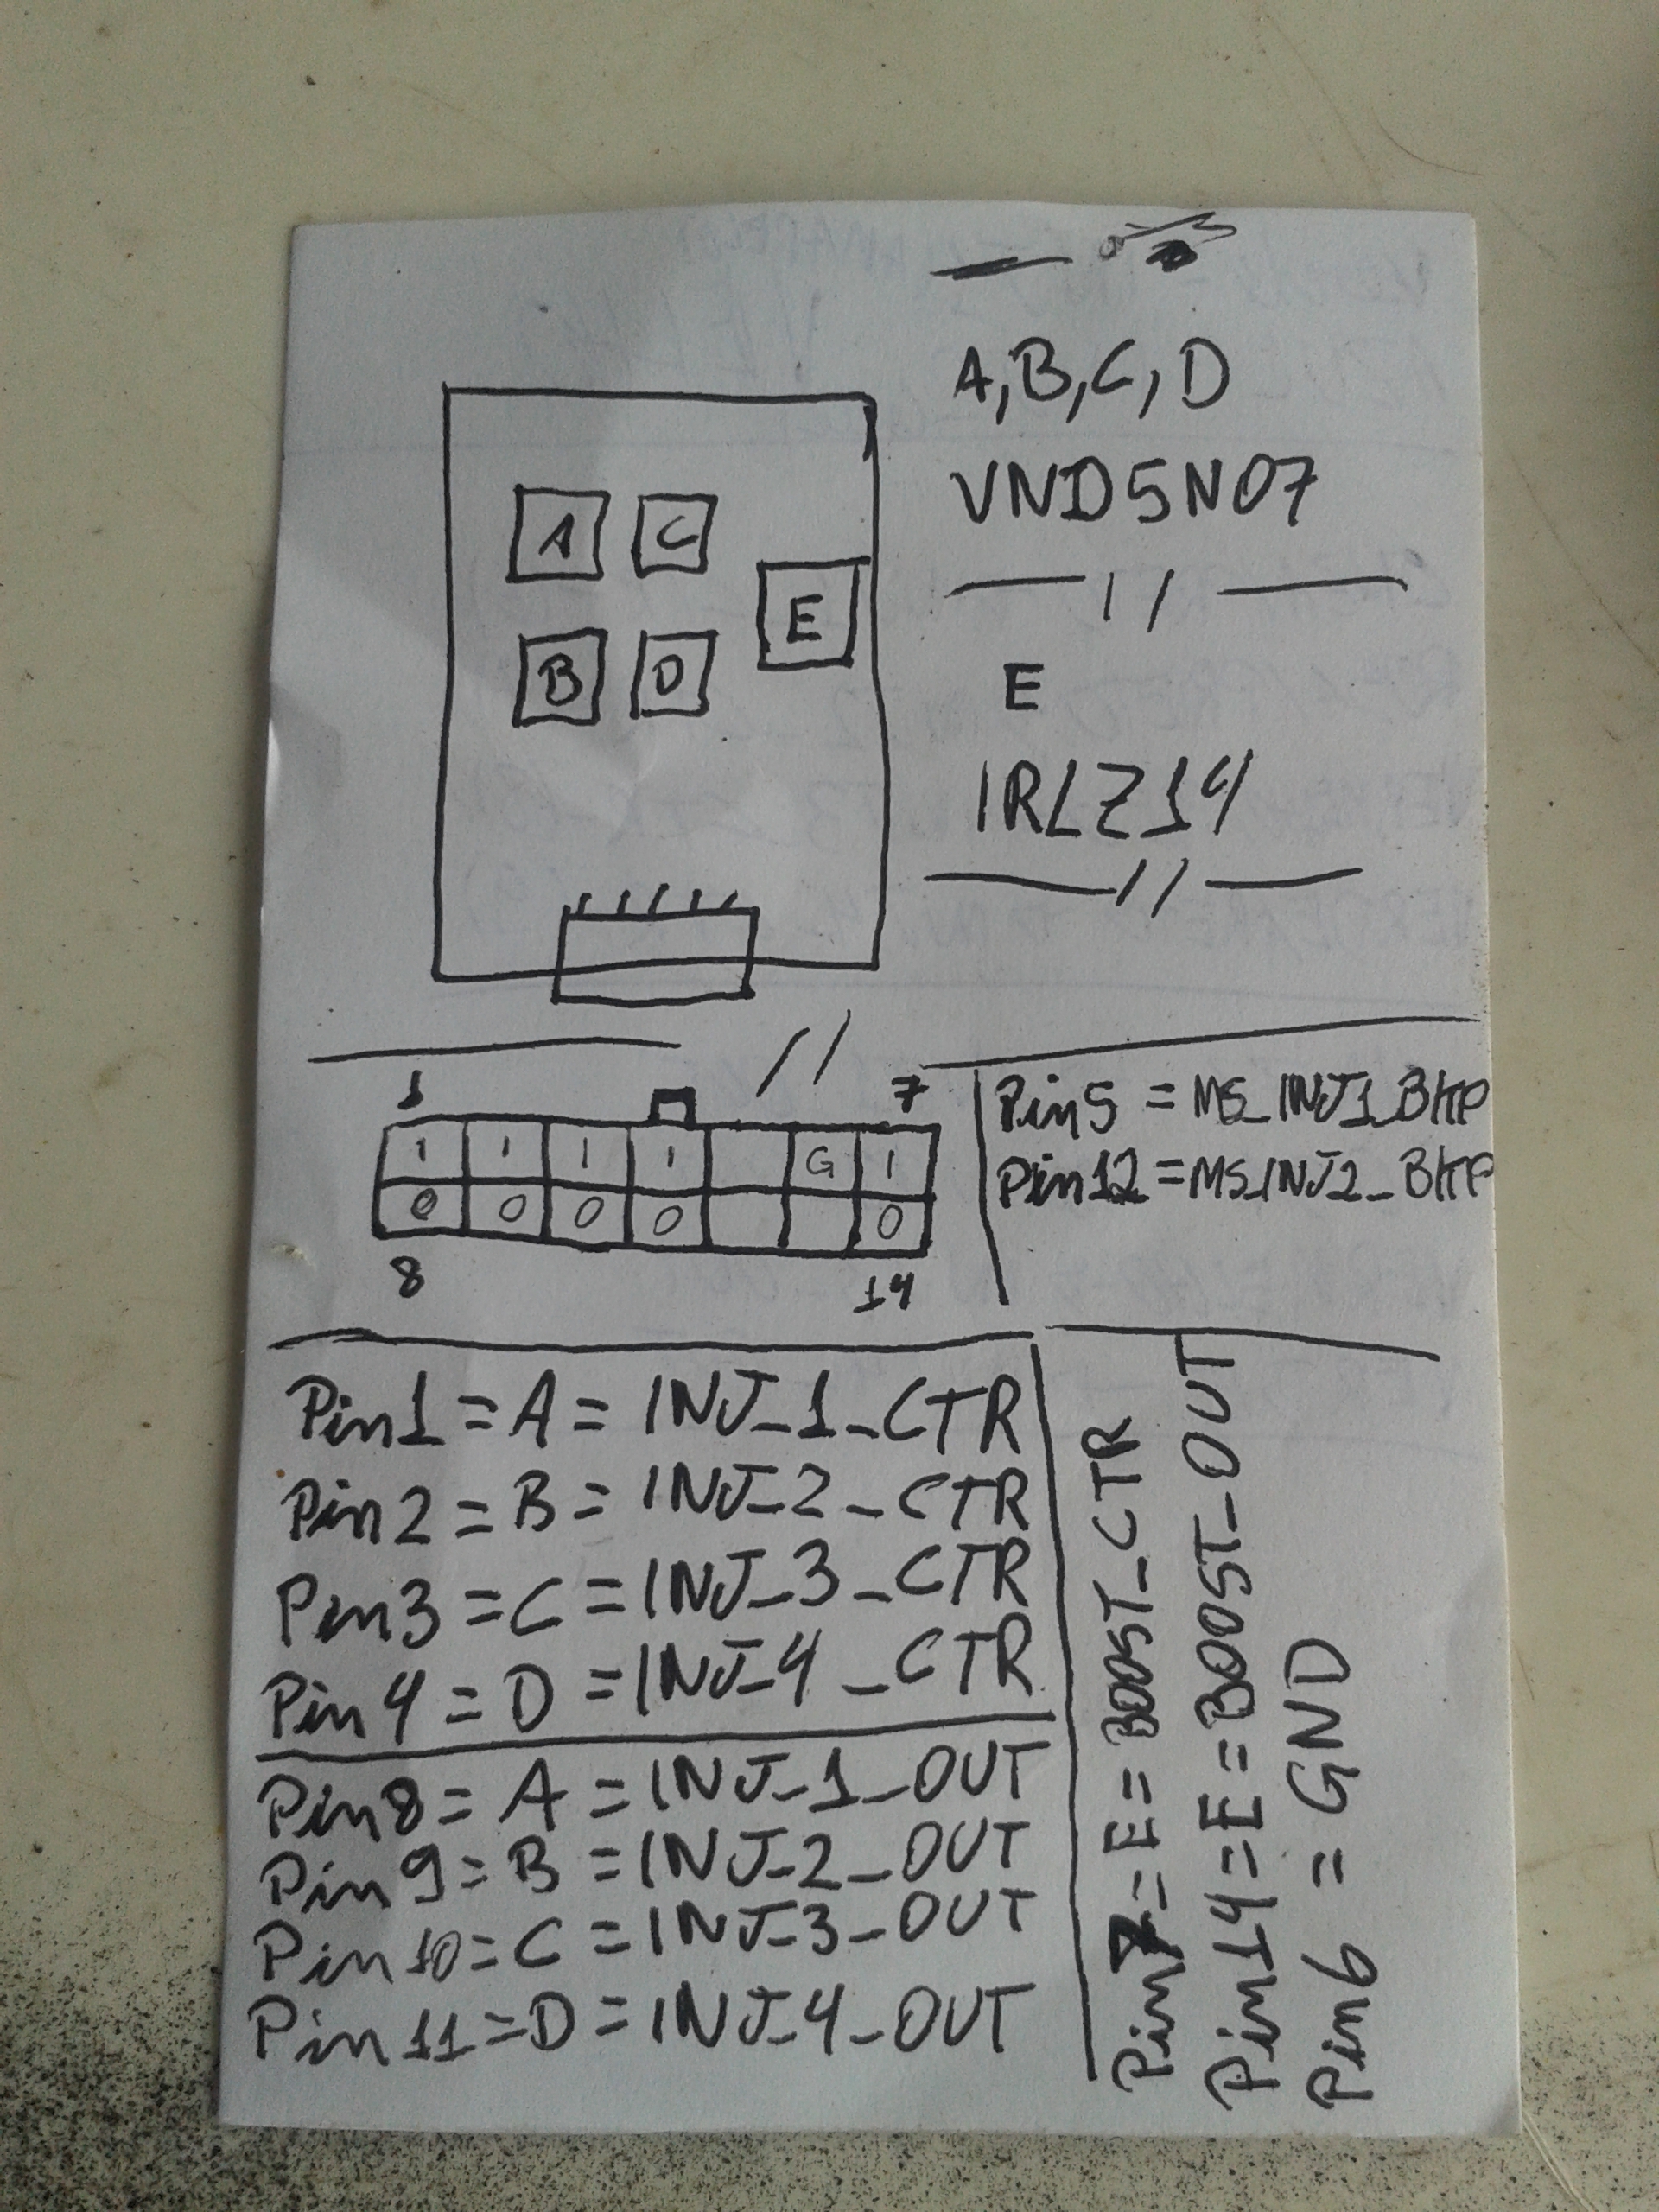 A, B, C, D
VND5N07
A C
E
B D
E
IRLZ14
1 7
I I I I G I
O O O O O
8 14
Pin5 = MS_INJ1_BKP
Pin12 = MS_INJ2_BKP
Pin1 = A = INJ_1_CTR
Pin2 = B = INJ_2_CTR
Pin3 = C = INJ_3_CTR
Pin4 = D = INJ_4_CTR
Pin8 = A = INJ_1_OUT
Pin9 = B = INJ_2_OUT
Pin10 = C = INJ_3_OUT
Pin11 = D = INJ_4_OUT
Pin7 = E = BOOST_CTR
Pin14 = E = BOOST_OUT
Pin6 = GND